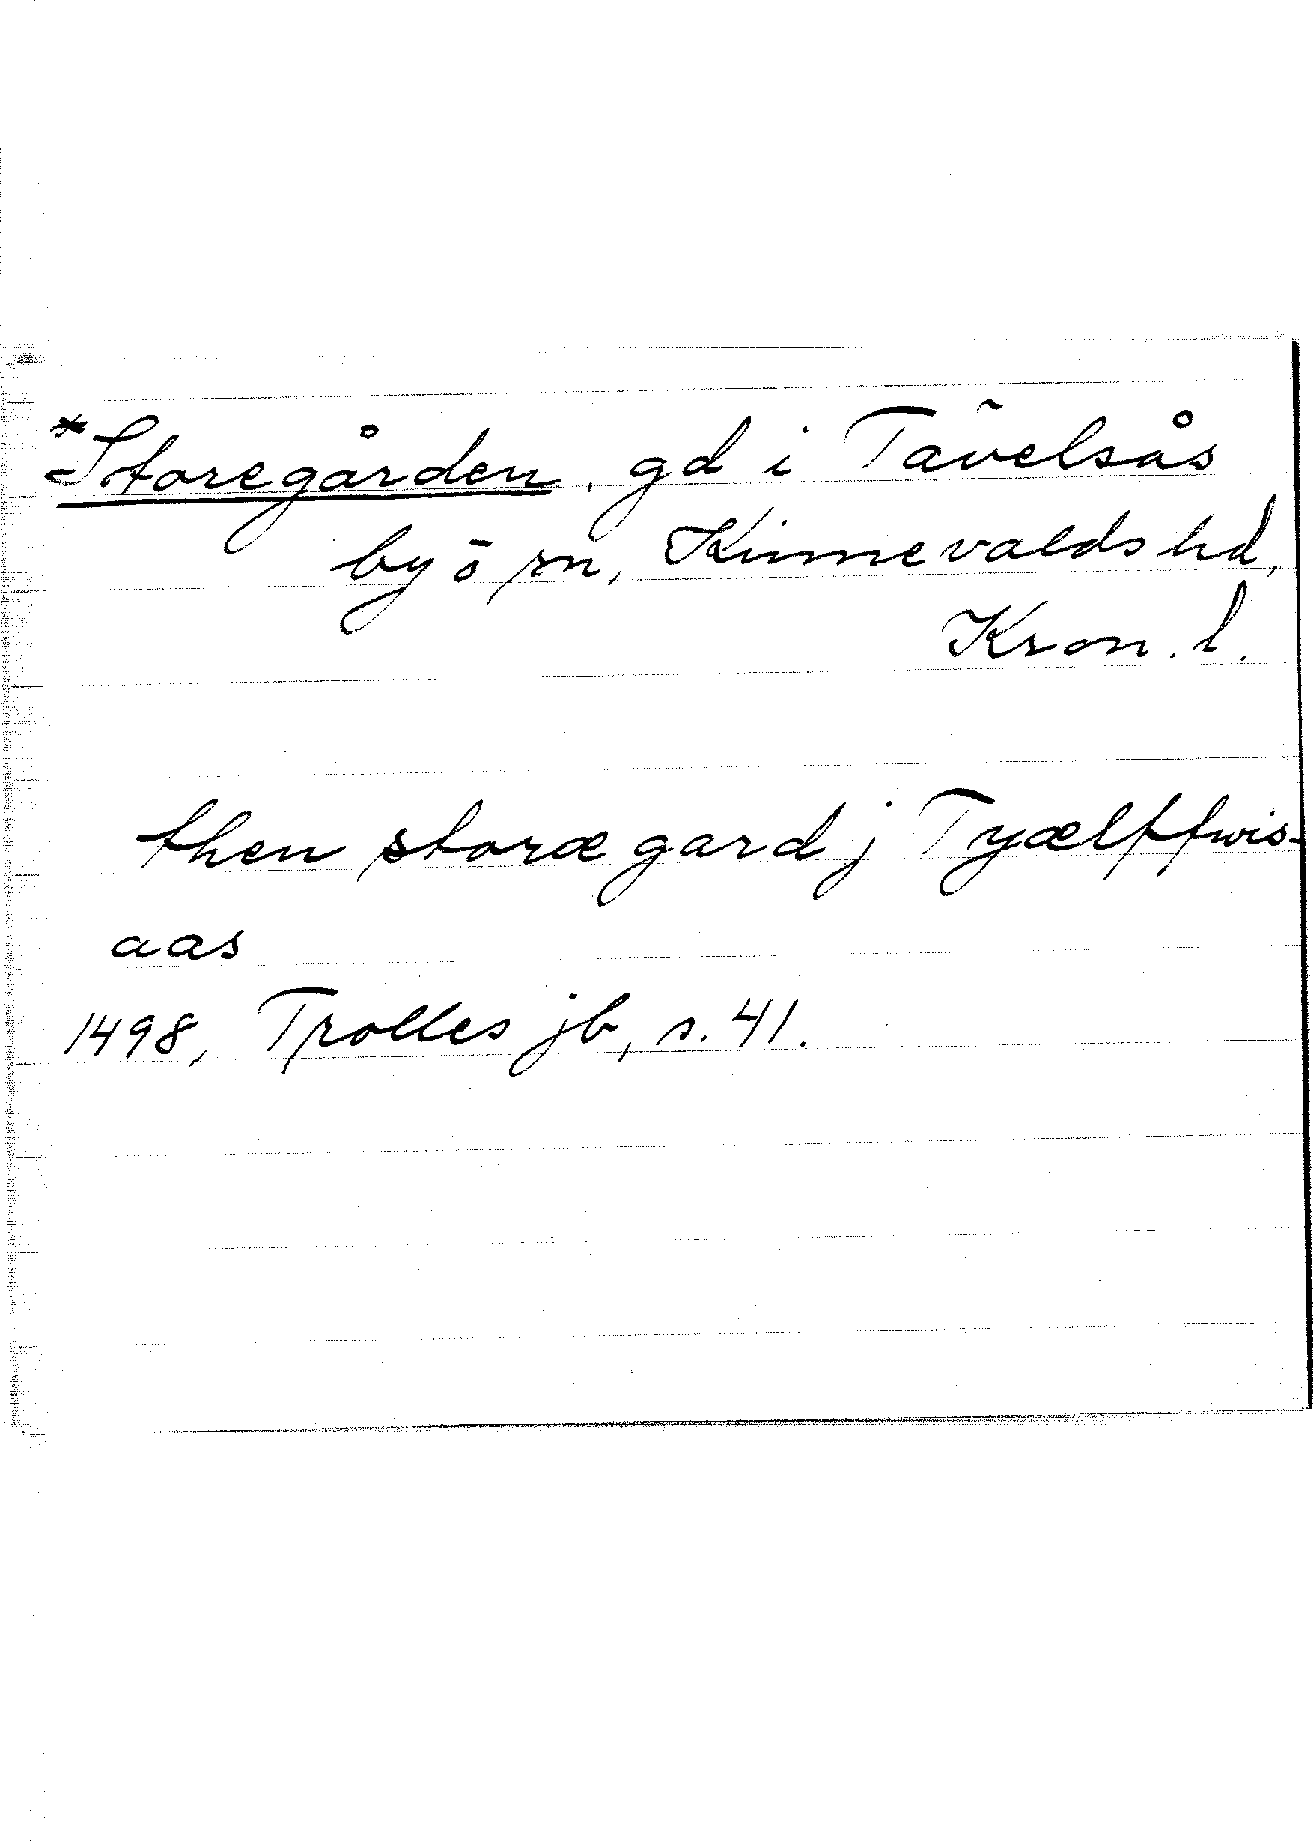 *Storegården, gd i Tävelsås
by ö sn, Kinnevalds hd,
Kron. l.
then storæ gard j Tyælffwis-
aas
1498, Trolles jb, s. 41.